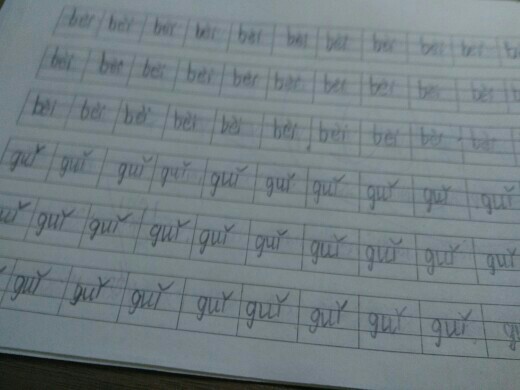 bèi bèi bèi bèi bèi bèi bèi bèi bèi bèi
bèi bèi bèi bèi bèi bèi bèi bèi bèi bèi
bèi bèi bèi bèi bèi bèi bèi bèi bèi bèi
guǐ guǐ guǐ guǐ guǐ guǐ guǐ guǐ guǐ guǐ
guǐ guǐ guǐ guǐ guǐ guǐ guǐ guǐ gu
guǐ guǐ guǐ guǐ guǐ guǐ guǐ guǐ gu